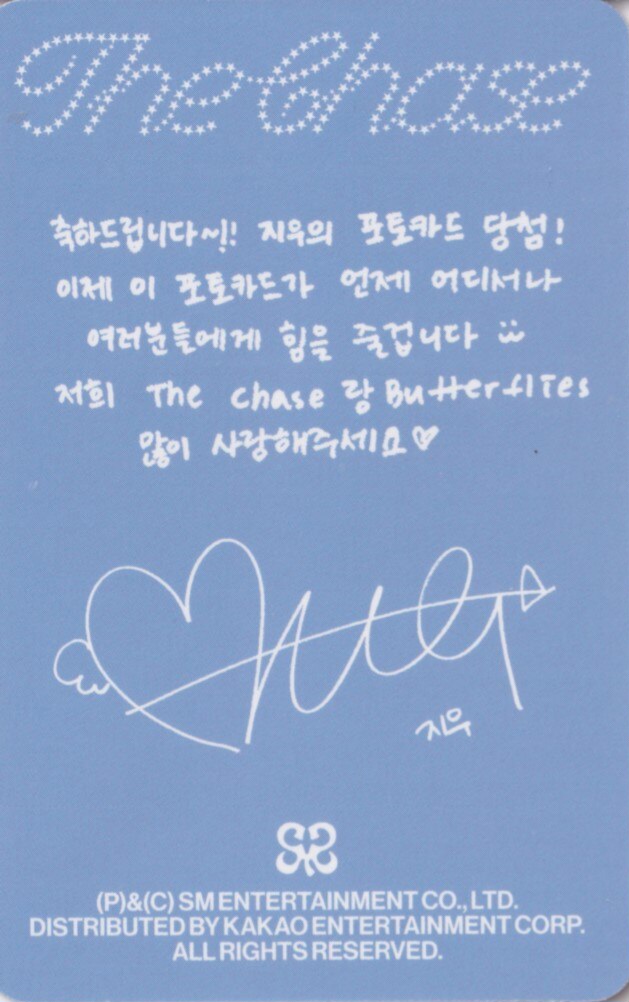 The Chase
축하드립니다~!! 지우의 포토카드 당첨!
이제 이 포토카드가 언제 어디서나
여러분들에게 힘을 줄겁니다
저희 The Chase 랑 Butterflies
많이 사랑해주세요
지우
(P)&(C) SM ENTERTAINMENT CO., LTD.
DISTRIBUTED BY KAKAO ENTERTAINMENT CORP.
ALL RIGHTS RESERVED.